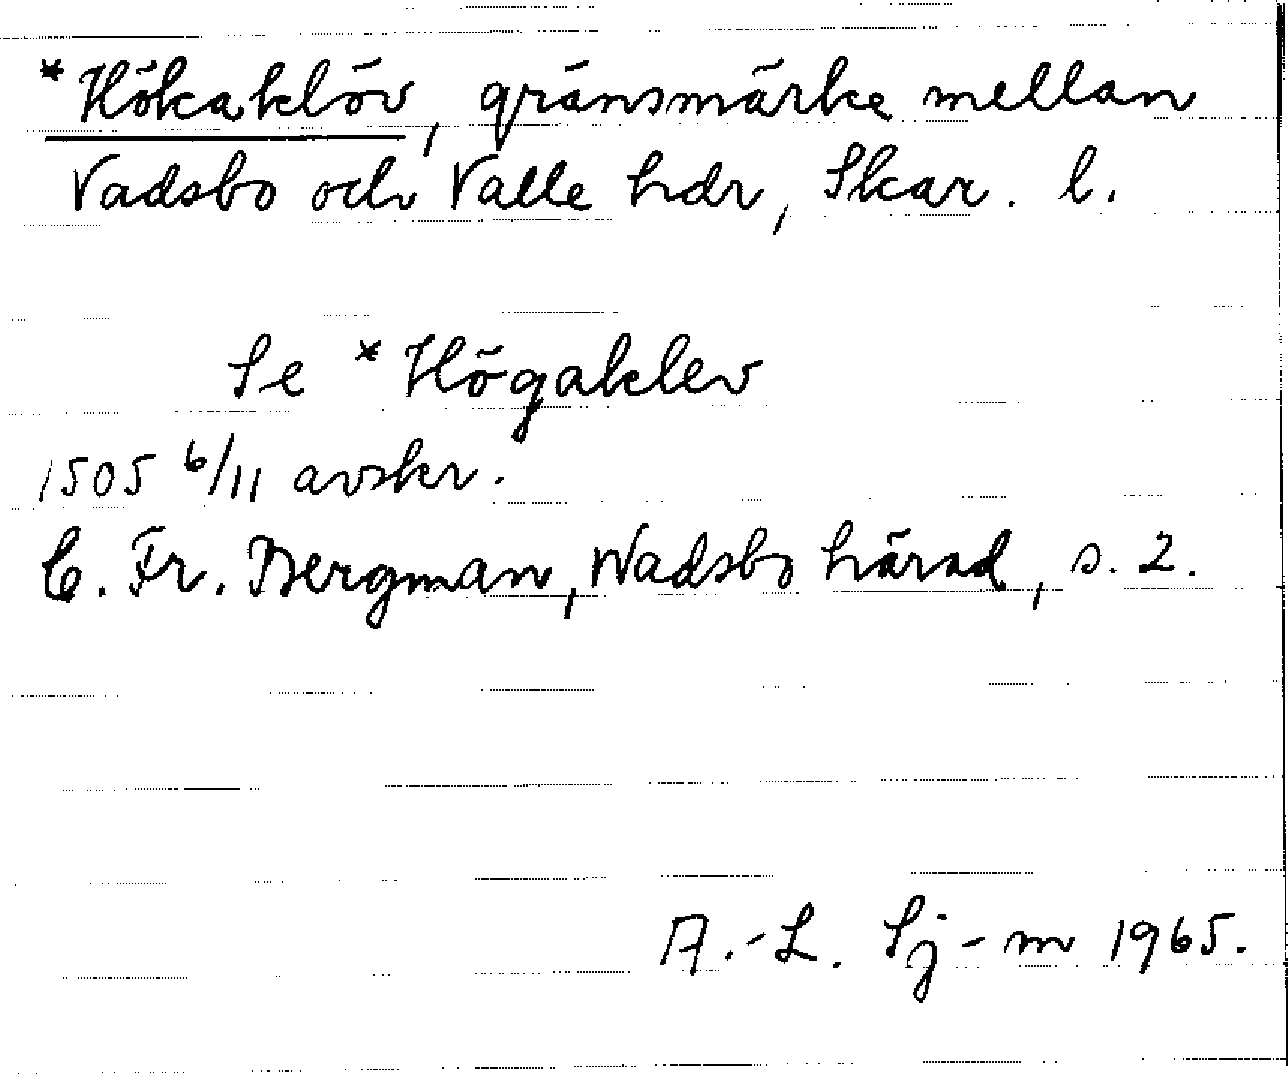 *Hökaklöv, gränsmärke mellan
Vadsbo och Valle hdr, Skar. l.
Se *Högaklev
1505 6/11 avskr.
C. Fr. Bergman, Wadsbo härad, s. 2.
A.-L. Sj-m 1965.